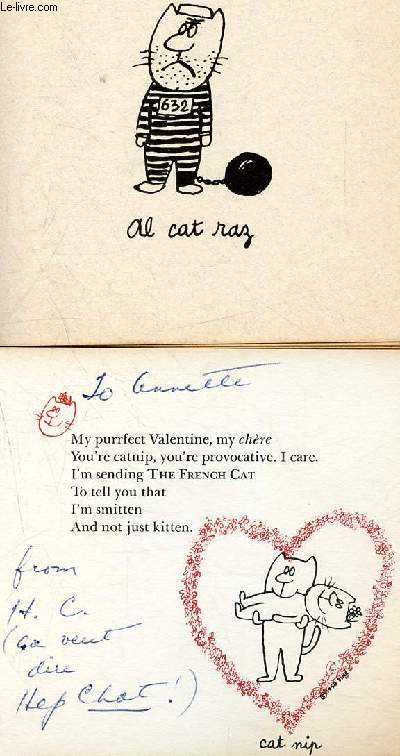 Le-livre.com
632
al cat raz
To Annette
My purrfect Valentine, my chère
You're catnip, you're provocative. I care.
I'm sending THE FRENCH CAT
To tell you that
I'm smitten
And not just kitten.
from
H. C.
(ça veut
dire
Hep Chat!)
cat nip